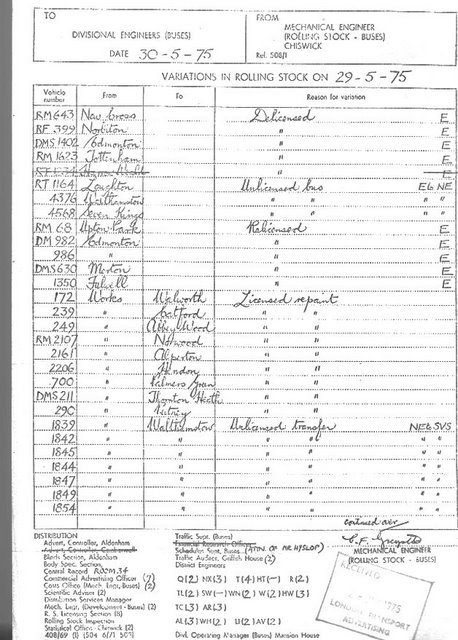 TO
DIVISIONAL ENGINEERS (BUSES)
DATE 30-5-75
FROM
MECHANICAL ENGINEER
(ROLLING STOCK - BUSES)
CHISWICK
Ref. 508/1
VARIATIONS IN ROLLING STOCK ON 29-5-75
Vehicle number From To Reason for variation
RM 643 New Cross Delicensed E
RF 399 Norbiton " E
DMS 1402 Edmonton " E
RM 1623 Tottenham " E
E
RT 1164 Loughton Unlicensed bus E6 NE
4376 Walthamstow " " " "
4568 Seven Kings " " " "
RM 68 Upton Park Relicensed E
DM 982 Edmonton " E
986 " " E
DMS 630 Merton " E
1350 Fulwell " E
172 Works Walworth Licensed repaint
239 " Catford " "
249 " Abbey Wood " "
RM 2107 " Norwood " "
2161 " Alperton " "
2206 " Hendon " "
700 " Palmers Green " "
DMS 211 " Thornton Heath " "
290 " Putney " "
1839 Walthamstow Unlicensed transfer NE6 SVS
1842 " " " " "
1845 " " " " "
1844 " " " " "
1847 " " " " "
1849 " " " " "
1854 " " " " "
continued over
MECHANICAL ENGINEER
(ROLLING STOCK - BUSES)
DISTRIBUTION
Advert. Controller, Aldenham
Advert. Controller, Camberwell
Blank Section, Aldenham
Body Spec. Section,
Central Record ROOM 34
Commercial Advertising Officer (7)
Costs Office (Mech. Engr. Buses) (2)
Scientific Adviser (2)
Distribution Services Manager
Mech. Dept. (Development - Buses) (2)
R. S. Licensing Section (3)
Rolling Stock Inspection
Statistical Office - Chiswick (2)
Traffic Supt. (Buses)
Financial Research Officer
Schedules Supt. Buses (ATTN. OF MR HYSLOP)
Traffic Auditor, Griffith House (2)
District Engineers
Q(2) NX(3) T(4) HT(-) R(2)
TL(2) SW(-) WN(2) W(2) HW(3)
TC(3) AR(3)
AL(3) WH(2) U(2) AV(2)
Divl. Operating Manager (Buses) Mansion House
RECEIVED
LONDON TRANSPORT
ADVERTISING